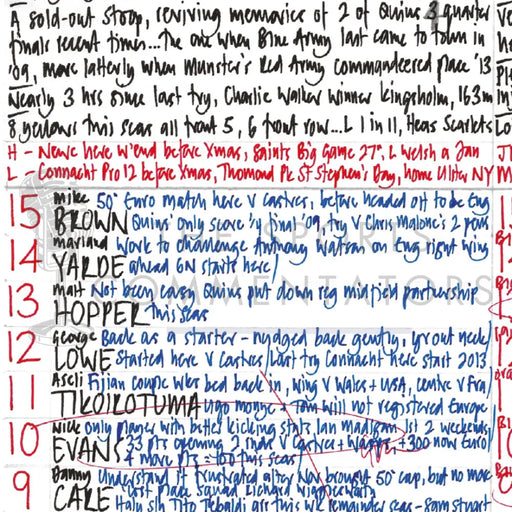 A sold-out Stoop, reviving memories of 2 of Quins 3 quarter
finals recent times... The one when Blue Army last came to town in
'09, more latterly when Munster's Red Army commandeered place '13
Nearly 3 hrs since last try, Charlie Walker winner Kingsholm, 163m
8 yellows this seas all front 5, 6 front row... L 1 in 11, Heas Scarlets
H - Newc here w'end before Xmas, Saints Big Game 27th, L Welsh 2 Jan
L - Connacht Pro 12 before Xmas, Thomond Pk St Stephen's Day, home Ulster NY
15 Mike 50th Euro match here v Castres, before headed off to be Eng
BROWN Quins' only score 1/4 final '09, try v Chris Malone's 2 pens
14 Marland Work to challenge Anthony Watson on Eng right wing
YARDE ahead 6N starts here!
13 Matt Not been easy Quins put down reg midfield partnership
HOPPER this seas
12 George Back as a starter - nudged back gently, grout neck/
LOWE Started here v Castres/last try Connacht here start 2013
11 Aseli Fijian couple wks bed back in, wing v Wales + USA, centre v Fra/
TIKOIROTUMA Ugo Monye + Tom Will not registered Europe
10 Nick only player with better kicking stats Ian Madigan 1st 2 weekends/
EVANS 23 pts opening 2 v Castres + Wasps +300 now Euro
4 more pts = 100 this seas
9 Danny Understand it frustrated after Nov brought 50th cap, but no more
CARE Lost place squad Richard Wigglesworth
Italy s/h Tito Tebaldi arr this wk remainder seas - Sam Stuart